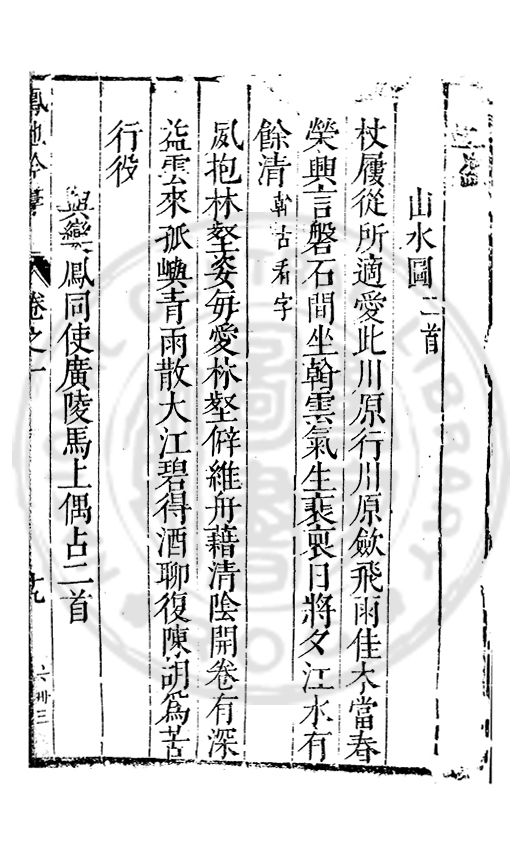 山水圖二首
杖屨從所適愛此川原行川原歛飛雨佳木當春
榮興言磐石間坐雲氣生裵日將夕江水有
餘清古看字
夙抱林壑姿每愛林壑僻維舟藉清陰開卷有深
益雲來孤嶼青雨散大江碧得酒聊復陳胡爲苦
行役
與欒鳳同使廣陵馬上偶占二首
鳳池吟稿 卷之一 十九